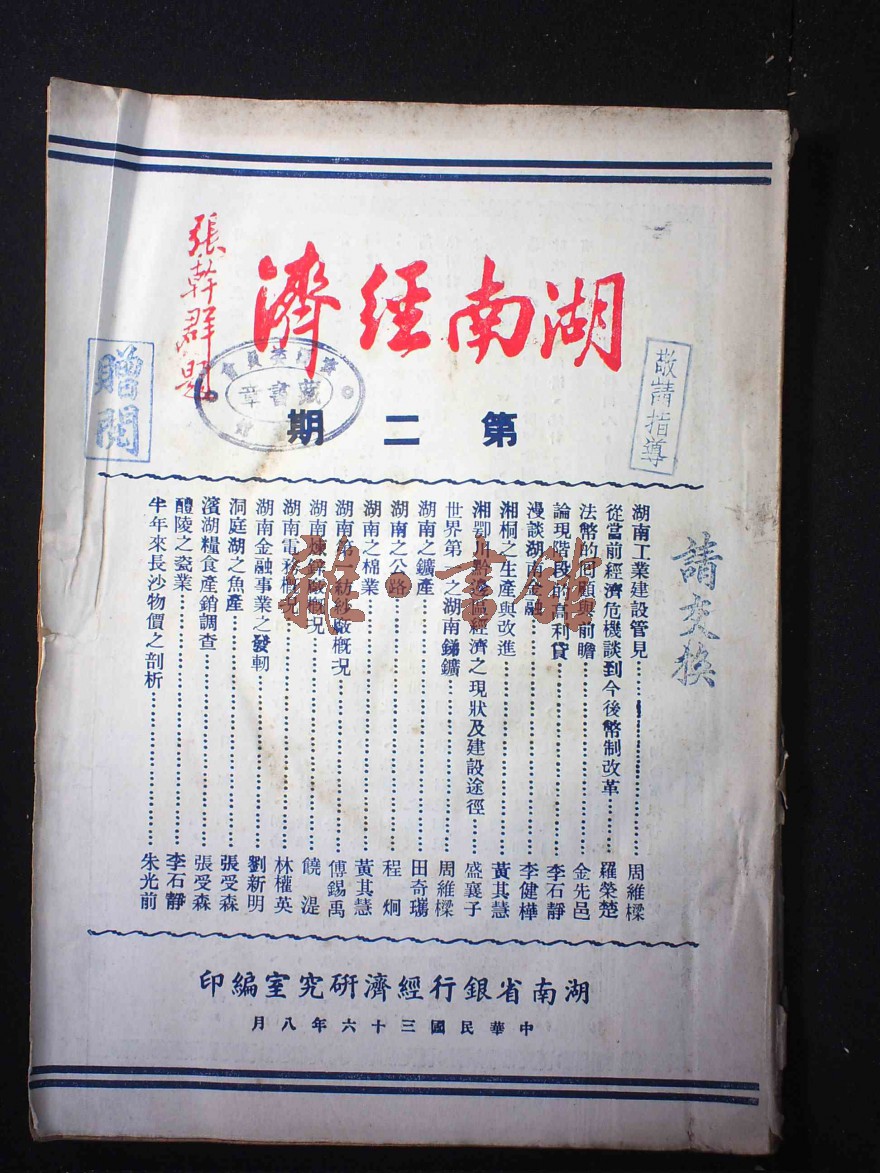 湖南經濟
張幹群題
第二期
敬請指導
贈閱
藏書章
請交換
湖南工業建設管見 周維樑
從當前經濟危機談到今後幣制改革 羅榮楚
法幣的回顧與前瞻 金先邑
論現階段的高利貸 李石靜
漫談湖南金融 李健樺
湘桐之生產與改進 黃其慧
湘鄂川黔邊區經濟之現狀及建設途徑 盛襄子
世界第一之湖南銻鑛 周維樑
湖南之鑛產 田奇㻪
湖南之公路 程炯
湖南之棉業 黃其慧
湖南第一紡紗廠概況 傅錫禹
湖南煉鋅廠概況 饒湜
湖南電務概況 林權英
湖南金融事業之發軔 劉新明
洞庭湖之魚產 張受森
濱湖糧食產銷調查 張受森
醴陵之瓷業 李石靜
半年來長沙物價之剖析 朱光前
湖南省銀行經濟研究室編印
中華民國三十六年八月
雜·書館